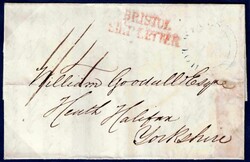 BRISTOL
SHIP LETTER
William Goodall Esqr
Heath Halifax
Yorkshire